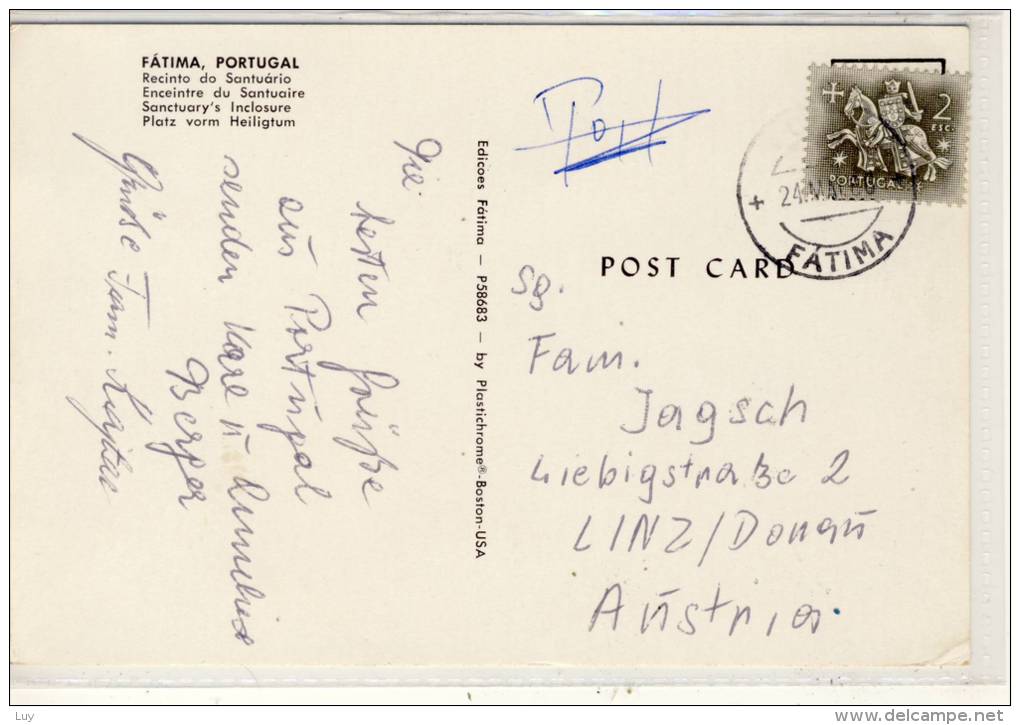 FÁTIMA, PORTUGAL
Recinto do Santuário
Enceintre du Santuaire
Sanctuary's Inclosure
Platz vorm Heiligtum
Die
besten Grüße
aus Portugal
senden
Berger
Grüße Fam.
Edicoes Fátima — P58683 — by Plastichrome®-Boston-USA
2
ESC.
PORTUGAL
24
FÁTIMA
POST CARD
Fam.
Jagsch
Liebigstraße 2
LINZ/Donau
Austria
Luy
delcampe.net